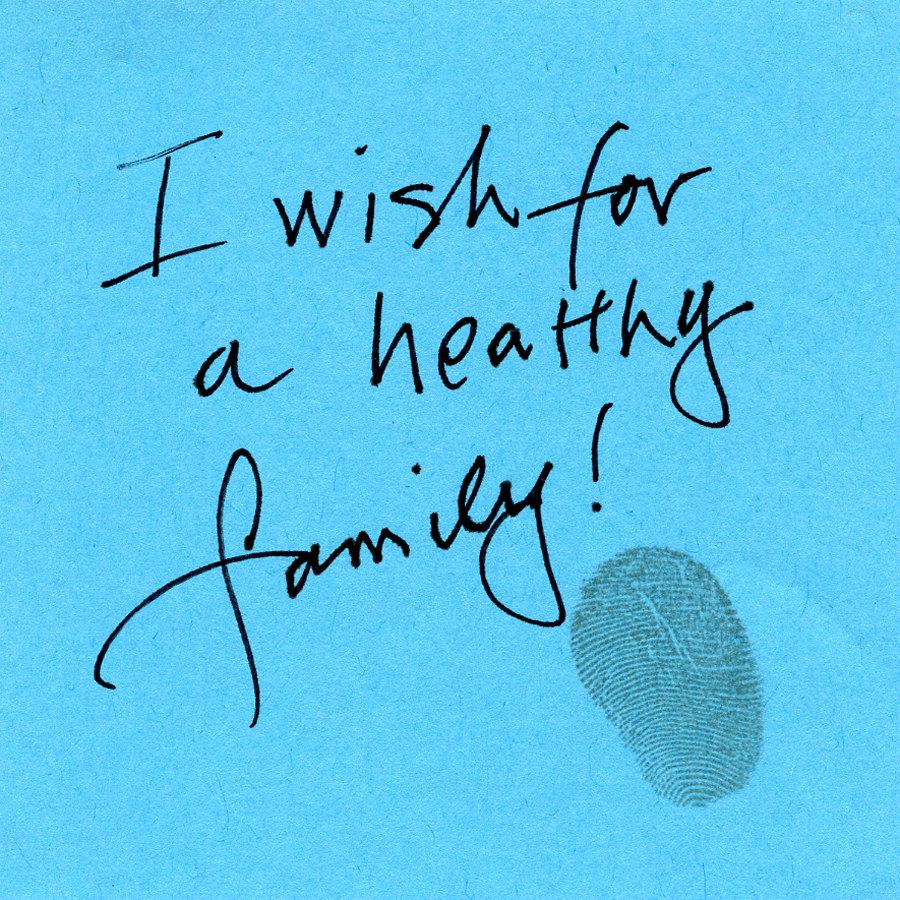 I wish for
a healthy
family!